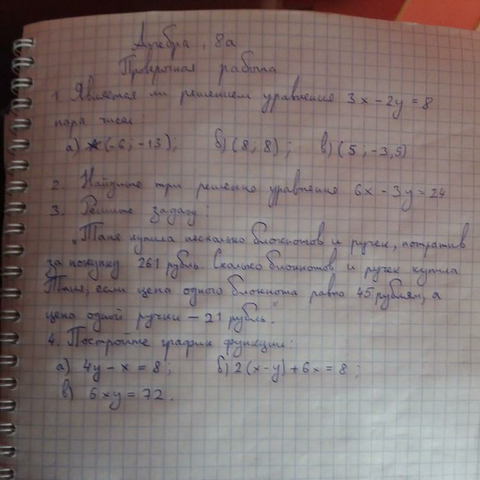 Алгебра, 8а
Проверочная работа
1. Является ли решением уравнения 3x - 2y = 8
пара чисел:
а) (-6; -13); б) (8; 8); в) (5; -3,5)
2. Найдите три решения уравнения 6x - 3y = 24
3. Решите задачу:
„Таня купила несколько блокнотов и ручек, потратив
за покупку 261 рубль. Сколько блокнотов и ручек купила
Таня, если цена одного блокнота равна 45 рублям, а
цена одной ручки - 21 рубль."
4. Постройте график функции:
а) 4y - x = 8; б) 2(x-y) + 6x = 8;
в) 6xy = 72.